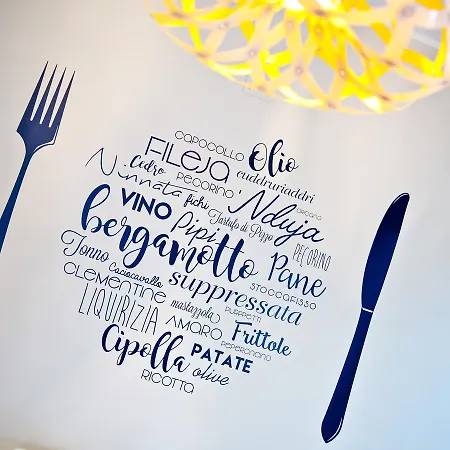 CAPOCOLLO Olio
FILEJA cuddruriaddri
Cedro PECORINO 'Nduja
Ninnata fichi
VINO Pipi Tartufo di Pizzo
bergamotto PECORINO
Pane
Tonno Caciocavallo suppressata STOCCAFISSO
CLEMENTINE PURPPETTI
LIQUIRIZIA mastazzola
AMARO Frittole
PEPERONCINO
Cipolla PATATE
olive
RICOTTA